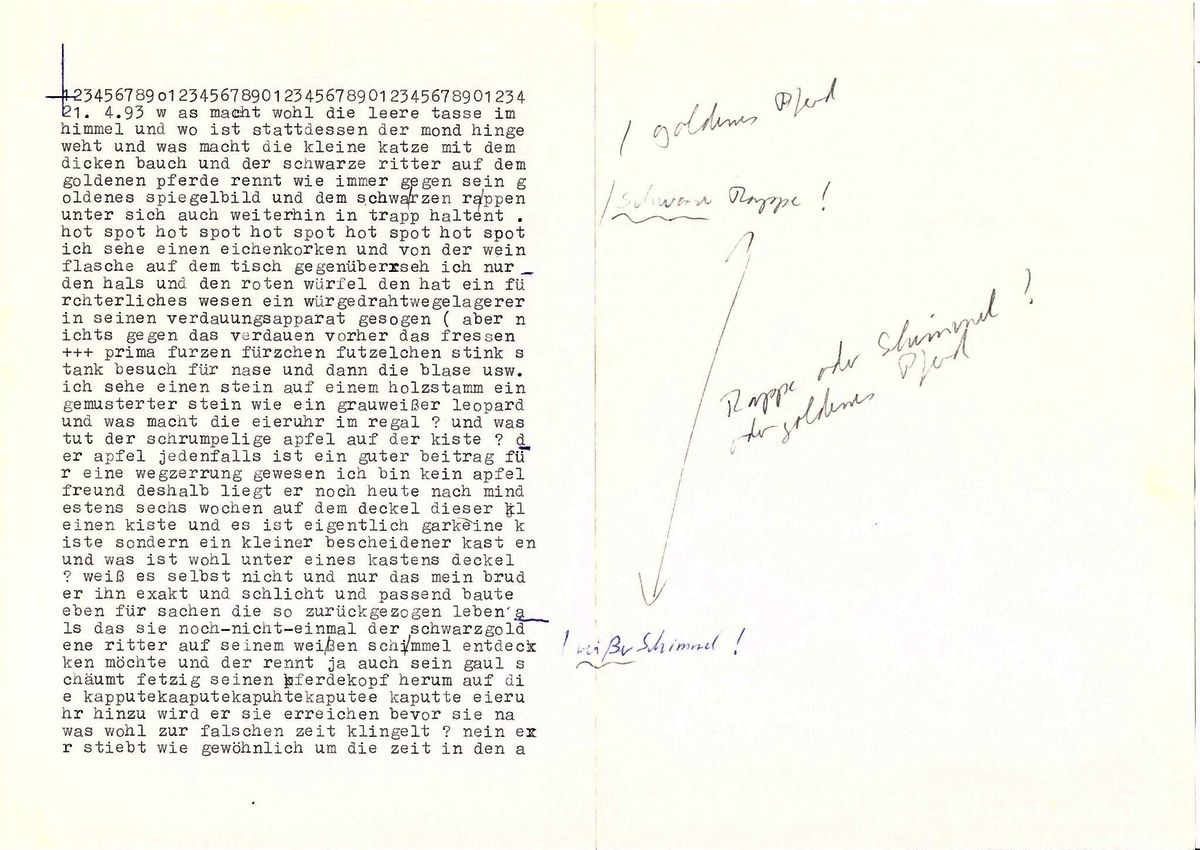 123456789o12345678901234567890123456789012345678901234
21. 4.93 w as macht wohl die leere tasse im
himmel und wo ist stattdessen der mond hinge
weht und was macht die kleine katze mit dem
dicken bauch und der schwarze ritter auf dem
goldenen pferde rennt wie immer gegen sein g
oldenes spiegelbild und dem schwarzen rappen
unter sich auch weiterhin in trapp haltent .
hot spot hot spot hot spot hot spot hot spot
ich sehe einen eichenkorken und von der wein
flasche auf dem tisch gegenüberxseh ich nur _
den hals und den roten würfel den hat ein fü
rchterliches wesen ein würgedrahtwegelagerer
in seinen verdauungsapparat gesogen ( aber n
ichts gegen das verdauen vorher das fressen
+++ prima furzen fürzchen futzelchen stink s
tank besuch für nase und dann die blase usw.
ich sehe einen stein auf einem holzstamm ein
gemusterter stein wie ein grauweißer leopard
und was macht die eieruhr im regal ? und was
tut der schrumpelige apfel auf der kiste ? d
er apfel jedenfalls ist ein guter beitrag fü
r eine wegzerrung gewesen ich bin kein apfel
freund deshalb liegt er noch heute nach mind
estens sechs wochen auf dem deckel dieser kl
einen kiste und es ist eigentlich garkeine k
iste sondern ein kleiner bescheidener kast en
und was ist wohl unter eines kastens deckel
? weiß es selbst nicht und nur das mein brud
er ihn exakt und schlicht und passend baute
eben für sachen die so zurückgezogen leben a
ls das sie noch-nicht-einmal der schwarzgold
ene ritter auf seinem weißen schimmel entdeck
ken möchte und der rennt ja auch sein gaul s
chäumt fetzig seinen pferdekopf herum auf di
e kapputekaaputekapuhtekaputee kaputte eieru
hr hinzu wird er sie erreichen bevor sie na
was wohl zur falschen zeit klingelt ? nein ex
r stiebt wie gewöhnlich um die zeit in den a
/ goldenes Pferd
/ schwarze Rappe !
Rappe oder Schimmel !
oder goldenes Pferd
/ weißer Schimmel !